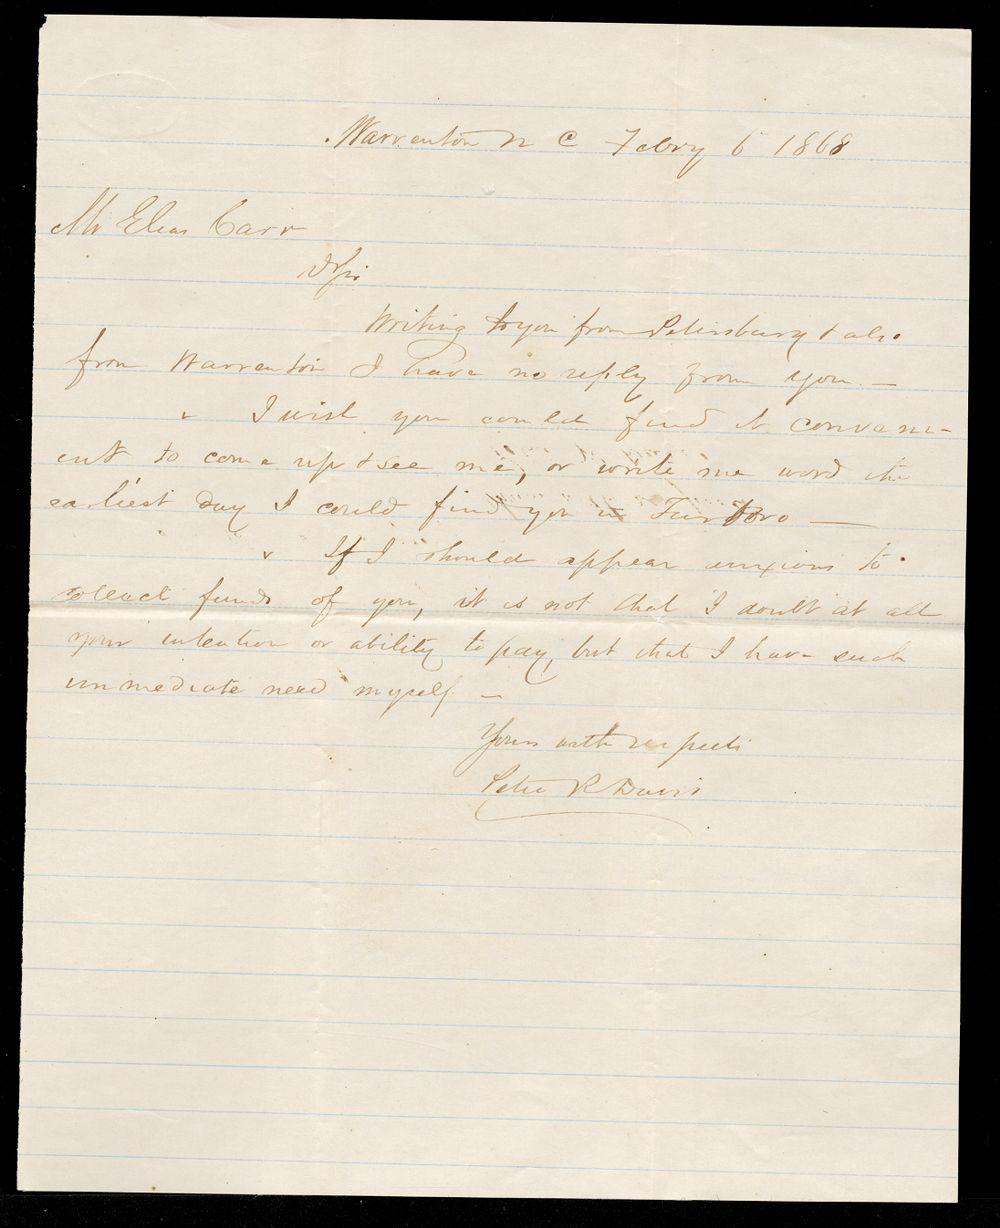 Warrenton N C Febry 6 1868
Mr Elias Carr
D Sir
Writing to you from Petersburg & also
from Warrenton I have no reply from you. —
I wish you could find it conveni-
ent to come up & see me, or write me word the
earliest day I could find you in Tarboro —
If I should appear anxious to
collect funds of you, it is not that I doubt at all
your intention or ability to pay, but that I have such
immediate need myself —
Yours with respect
Peter R Davis